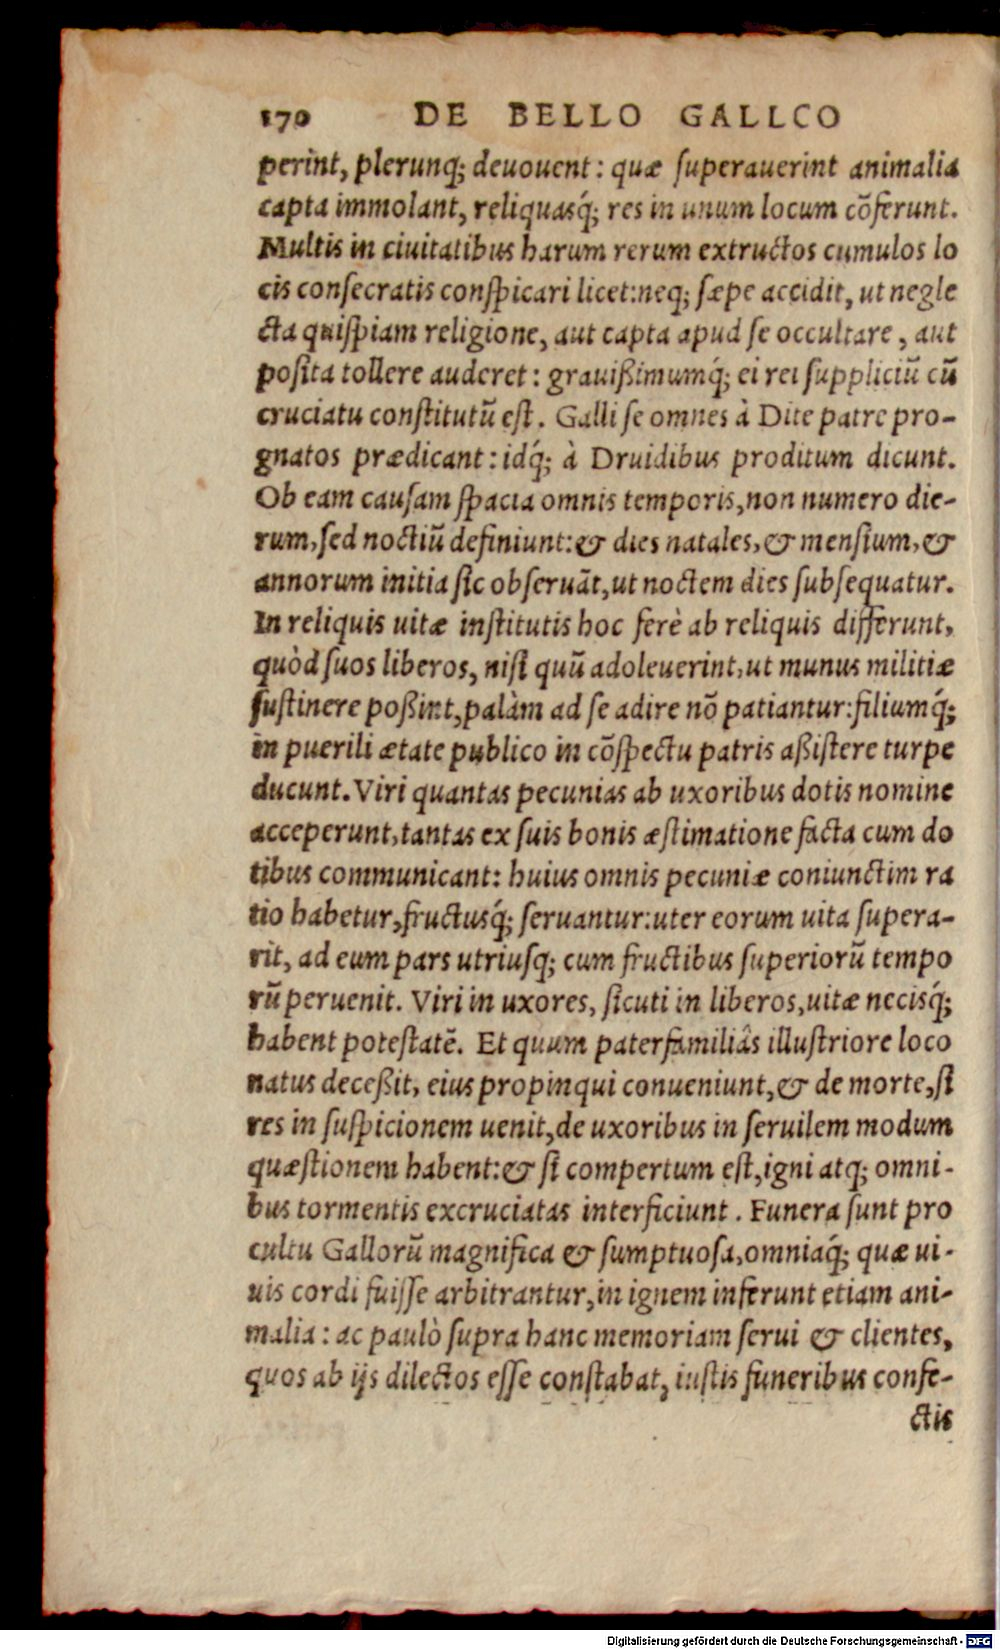 170 DE BELLO GALLCO
perint, plerunq; deuouent: quæ ſuperauerint animalia
capta immolant, reliquasq́; res in unum locum cõferunt.
Multis in ciuitatibus harum rerum extructos cumulos lo
cis conſecratis conſpicari licet:neq; ſæpe accidit, ut negle
cta quiſpiam religione, aut capta apud ſe occultare, aut
poſita tollere auderet: grauißimumq́; ei rei ſuppliciũ cũ
cruciatu conſtitutũ eſt. Galli ſe omnes à Dite patre pro-
gnatos prædicant: idq́; à Druidibus proditum dicunt.
Ob eam cauſam ſpacia omnis temporis, non numero die-
rum, ſed noctiũ definiunt: & dies natales, & menſium, &
annorum initia ſic obſeruãt, ut noctem dies ſubſequatur.
In reliquis uitæ inſtitutis hoc ferè ab reliquis differunt,
quòd ſuos liberos, niſi quũ adoleuerint, ut munus militiæ
ſuſtinere poßint, palàm ad ſe adire nõ patiantur: filiumq́;
in puerili ætate publico in cõſpectu patris aßiſtere turpe
ducunt. Viri quantas pecunias ab uxoribus dotis nomine
acceperunt, tantas ex ſuis bonis æſtimatione facta cum do
tibus communicant: huius omnis pecuniæ coniunctim ra
tio habetur, fructusq́; ſeruantur: uter eorum uita ſupera-
rit, ad eum pars utriuſq; cum fructibus ſuperiorũ tempo
rũ peruenit. Viri in uxores, ſicuti in liberos, uitæ necisq́;
habent poteſtatẽ. Et quum paterfamiliâs illuſtriore loco
natus deceßit, eius propinqui conueniunt, & de morte, ſi
res in ſuſpicionem uenit, de uxoribus in ſeruilem modum
quæſtionem habent: & ſi compertum eſt, igni atq; omni-
bus tormentis excruciatas interficiunt. Funera ſunt pro
cultu Gallorũ magnifica & ſumptuoſa, omniaq́; quæ ui-
uis cordi fuiſſe arbitrantur, in ignem inferunt etiam ani-
malia: ac paulò ſupra hanc memoriam ſerui & clientes,
quos ab ijs dilectos eſſe conſtabat, iuſtis funeribus confe-
ctis
Digitalisierung gefördert durch die Deutsche Forschungsgemeinschaft - DFG